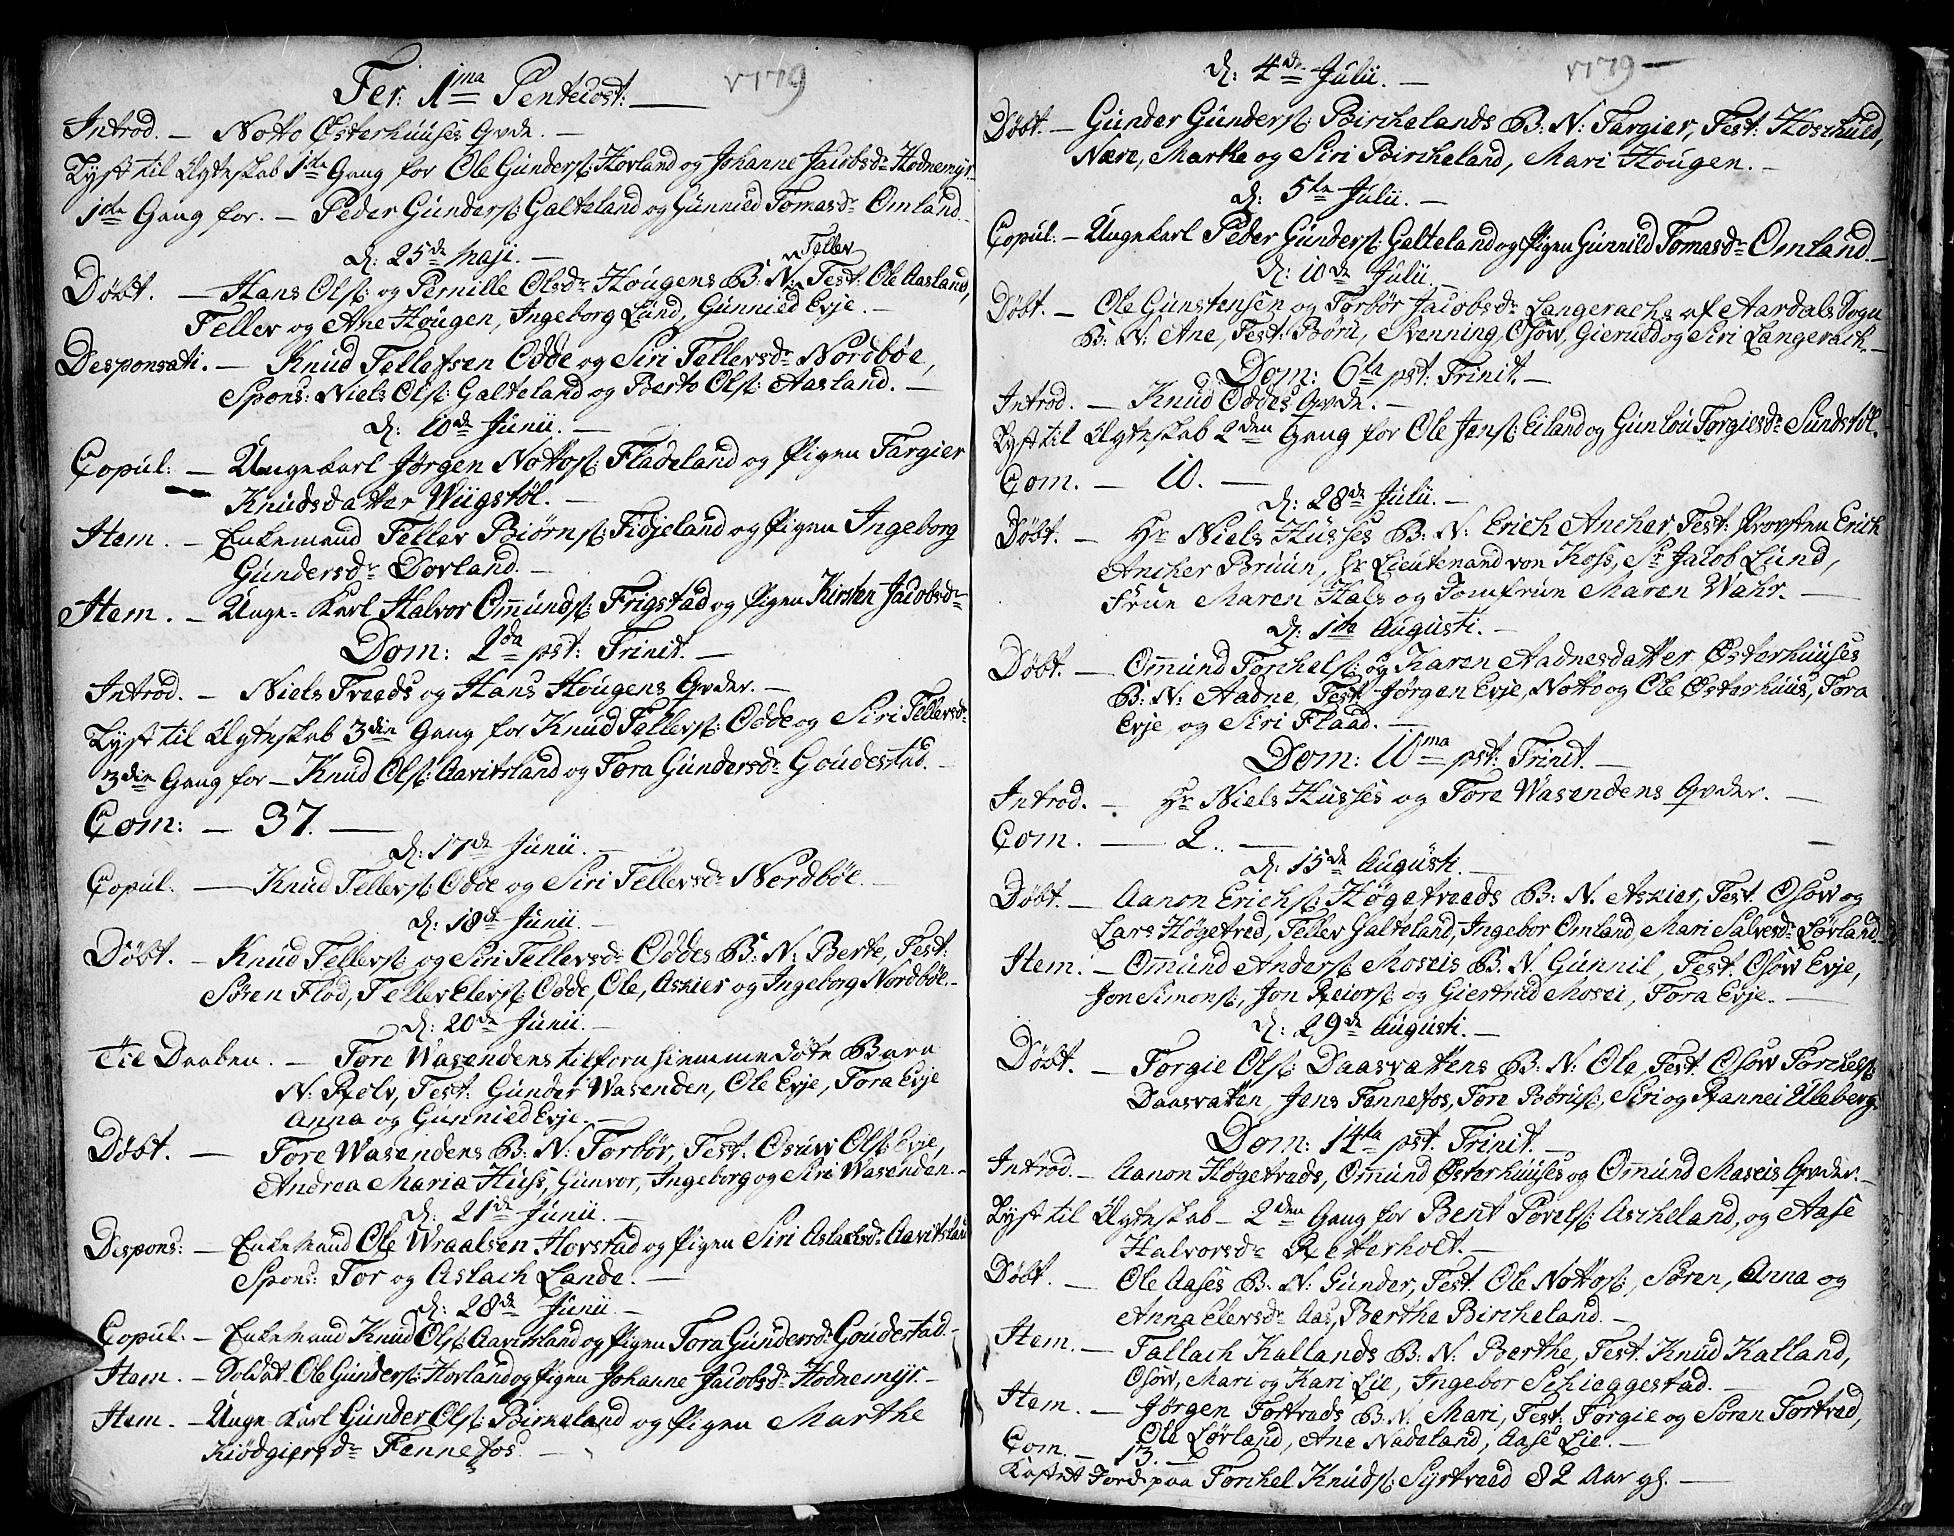 Fer: 1ma Pentecost: — 1779
Introd. — Notto Østerhuuses Qvde. —
Lyst til Ægteskab 1ste Gang for Ole Gunders: Hovland og Johanne Jacobsdr Hodnemyr.
1ste Gang for. — Peder Gunders: Galteland og Gunnild Tomasdr Omland.
d: 25de Maji. —
Døbt. — Hans Ols: og Pernille Olsdr Hougens B: N: Tellev Test: Ole Aasland,
Tellev og Ane Hougen, Ingeborg Lund, Gunnild Evje. —
Desponsati. — Knud Tellefsen Odde og Siri Tellevsdr Nordbøe,
Spons: Niels Ols: Galteland og Berto Ols: Aasland. —
d: 10de Junii. —
Copul: — Ungekarl Jørgen Nottos: Fladeland og Pigen Targier
Knudsdatter Wiigstøl. —
Item. — Enkemand Tellev Biørns: Fidjeland og Pigen Ingeborg
Gundersdr Dovland. —
Item. — Unge-Karl Halvor Omunds: Frigstad og Pigen Kirsten Jacobsdr
Dom: 2da pst: Trinit. —
Introd. — Niels Treeds og Hans Hougens Qvder. —
Lyst til Ægteskab 3die Gang for Knud Tellevs: Odde og Siri Tellevsdr
3die Gang for — Knud Ols: Aavitsland og Tora Gundersdr Goudestad. —
Com: — 37. —
d: 17de Junii. —
Copul. — Knud Tellevs: Odde og Siri Tellevsdr Nordbøe. —
d: 18de Junii. —
Døbt. — Knud Tellevs: og Siri Tellevsdr Oddes B: N: Berte, Test:
Søren Flod, Tellev Elevs: Odde, Ole, Askier og Ingeborg Nordbøe. —
d: 20de Junii. —
Til Daaben. — Tore Wasendens tilforn hiemmedøte Barn
N. Relv, Test: Gunder Wasenden, Ole Evje, Tora Evje
Anna og Gunnild Evje. —
Døbt. — Tore Wasendens B: N: Torbør, Test. Osuw Ols: Evje,
Andrea Maria Huss, Gunvor, Ingeborg og Siri Wasenden. —
d: 21de Junii. —
Despons: — Enkemand Ole Wraalsen Hovstad og Pigen Siri Aslachsdr Aavitsland
Spons: Tor og Aslach Lande. —
d: 28de Junii. —
Copul: — Enkemand Knud Ols: Aavitsland og Pigen Tora Gundersdr Goudestad. —
Item. — Soldat Ole Gunders: Hovland og Pigen Johanne Jacobsdr Hodnemyr. —
Item. — Unge-Karl Gunder Ols: Birkeland og Pigen Marthe
Kiødgiersdr Fennefos. —
d: 4de Julii. — 1779 —
Døbt. — Gunder Gunders: Birchelands B: N: Targier, Test: Hoschuld,
Nære, Marthe og Siri Bircheland, Mari Hougen. —
d: 5te Julii. —
Copul: — Ungekarl Peder Gunders: Galteland og Pigen Gunnild Tomasdr Omland. —
d: 10de Julii.
Døbt. — Ole Gunstensen og Torbør Jacobsdr Langerachs af Aardals Sogn
B: N: Ane, Test: Boru, Svenning, Osow, Gieruld og Siri Langerach. —
Dom: 6ta pst: Trinit. —
Introd. — Knud Oddes Qvde. —
Lyst til Ægteskab 2den Gang for Ole Jens: Eiland og Gunlou Torgiesdr Sundstøl.
Com. — 10. —
d: 28de Julii. —
Døbt. — Hr Niels Husses B: N: Erich Ancher Test: Provsten Erich
Ancher Bruun, Hr Lieutenand von Koss, Sr Jacob Lund,
Frue Maren Hals og Jomfrue Maren Wahr. —
d: 1te Augusti. —
Døbt. — Omund Torchels: og Karen Aadnesdatter Østerhuuses
B: N: Aadne, Test Jørgen Evje, Notto og Ole Østerhuus, Tora
Evje og Siri Flaad. —
Dom: 10ma pst: Trinit. —
Introd. — Hr Niels Husses og Tore Wasendens Qvder. —
Com. — 2. —
d: 15de Augusti. —
Døbt. — Aanon Erichs: Høgetveeds B: N. Askier, Test. Osow og
Lars Høgetved, Tellev Galteland, Ingebor Omland, Mari Salvesdr Løvland. —
Item. — Omund Anders: Moseis B: N. Gunnil, Test. Osow Evje,
Jon Simons:, Jon Reiors: og Giertrud Mosei, Tora Evje. —
d: 29de Augusti. —
Døbt. — Torgie Ols: Daasvattens B: N. Ole, Test. Osow Torchels:
Daasvatten, Jens Fennefos, Tore Børus:, Siri og Rannei Uleberg.
Dom: 14ta pst: Trinit. —
Introd. — Aanon Høgetveds, Omund Østerhuuses og Omund Moseis Qvder. —
Lyst til Ægteskab — 2den Gang for Bent Porels: Ascheland, og Aase
Halvorsdr Retterholt. —
Døbt. — Ole Aases B: N: Gunder, Test. Ole Nottos:, Søren, Anna og
Anna Elevsdr Aas, Berthe Bircheland. —
Item. — Tallach Kallands B: N: Berthe, Test: Knud Kalland,
Osow, Mari og Kari Lie, Ingebor Schieggestad. —
Item. — Jørgen Tortveds B: N: Mari, Test: Torgie og Søren Tortved,
Ole Løvland, Ane Nadeland, Aase Lie. —
Com. — 13. —
Kastet Jord paa Torchel Knuds: Syrtveed 82 Aar gl. —